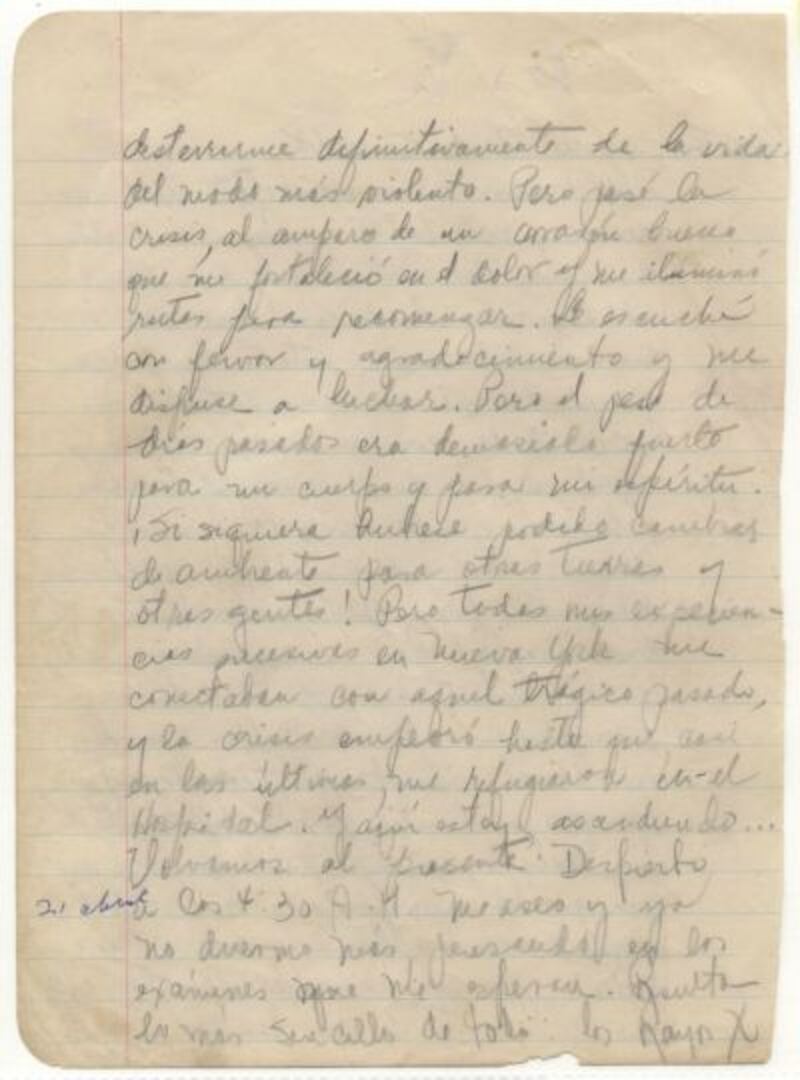 desterrarme definitivamente de la vida
del modo más violento. Pero pasé la
crisis, al amparo de un corazón bueno
que me fortaleció en el dolor y me iluminó
rutas para recomenzar. Le escuché
con fervor y agradecimiento y me
dispuse a luchar. Pero el peso de
días pasados era demasiado fuerte
para mi cuerpo y para mi espíritu.
¡Si siquiera hubiese podido cambiar
de ambiente para otras tierras y
otras gentes! Pero todas mis experien-
cias sucesivas en Nueva York me
conectaban con aquel trágico pasado,
y la crisis empeoró hasta que casi
en las últimas, me refugiaron en el
Hospital. Y aquí estoy, ascendiendo...
Volvamos al presente. Despierto
21 abril
a las 4:30 A.M. Me aseo y ya
no duermo más, pensando en los
exámenes que me esperan. Resulta
lo más sencillo de todo: los Rayos X